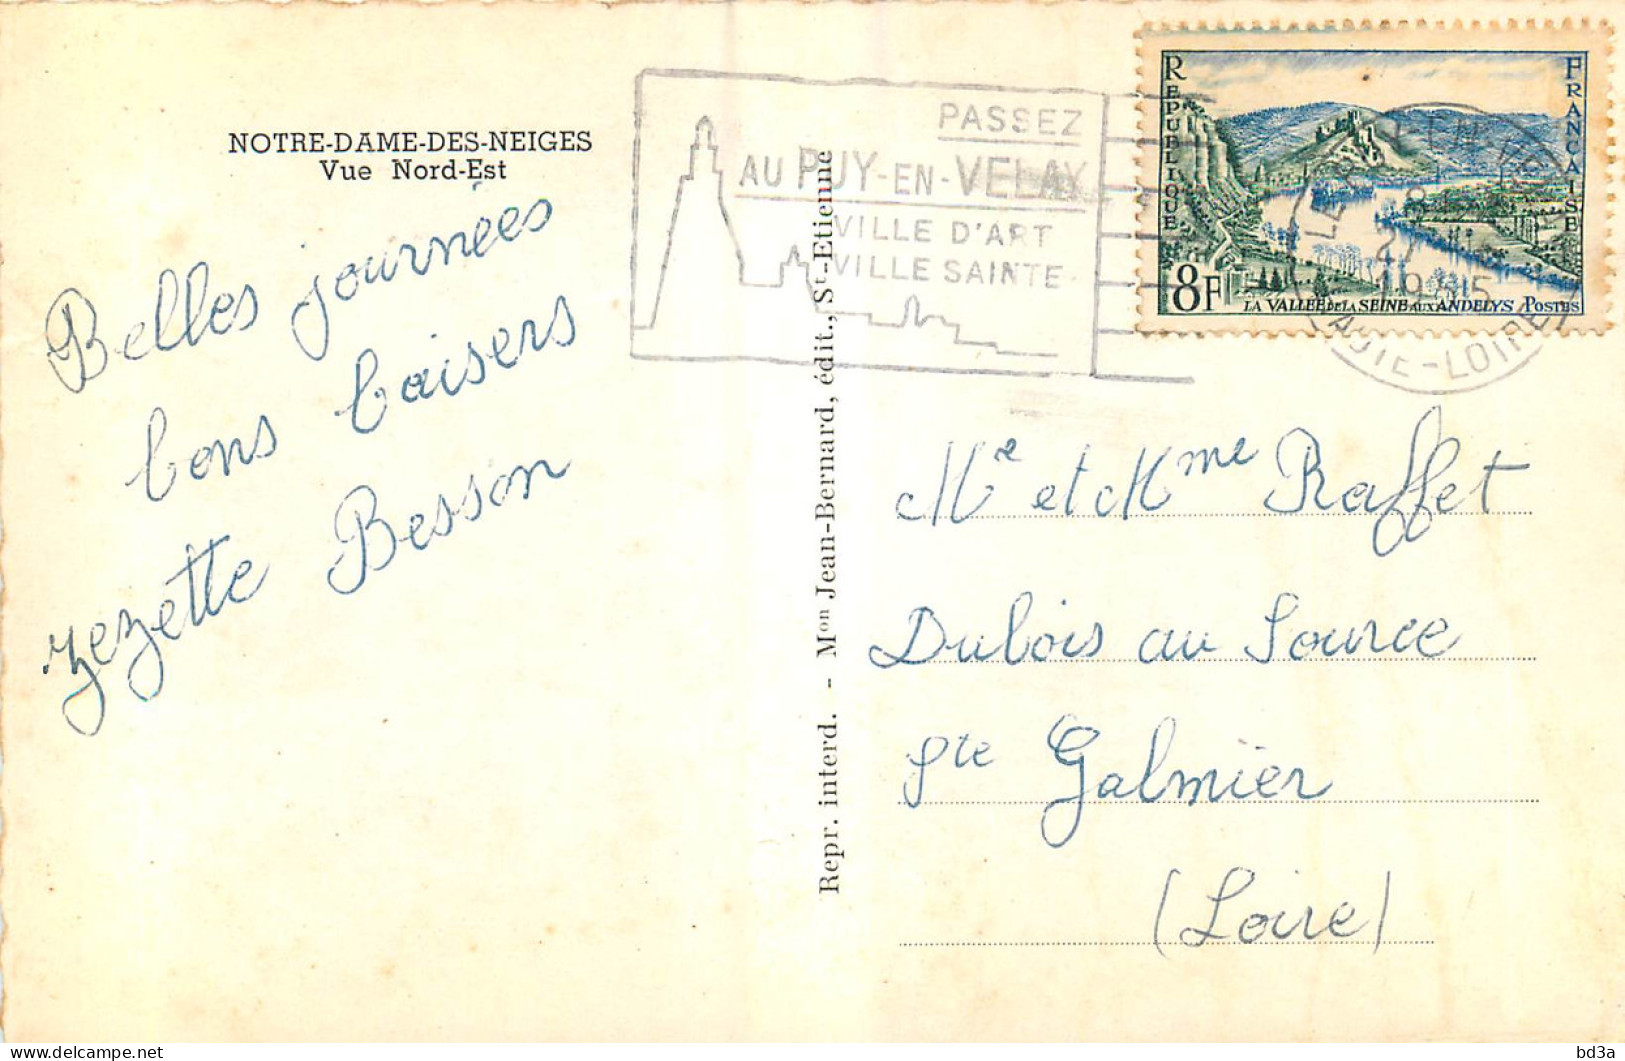 NOTRE-DAME-DES-NEIGES
Vue Nord-Est
Belles journées
bons baisers
Zezette Besson
Repr. interd. - Mon Jean-Bernard, édit., St-Etienne
PASSEZ
AU PUY-EN-VELAY
VILLE D'ART
VILLE SAINTE
REPUBLIQUE
FRANCAISE
8F
LA VALLÉE DE LA SEINE AUX ANDELYS POSTES
HAUTE-LOIRE
Mr et Mme Raffet
Dubois au Source
Ste Galmier
(Loire)
bd3a